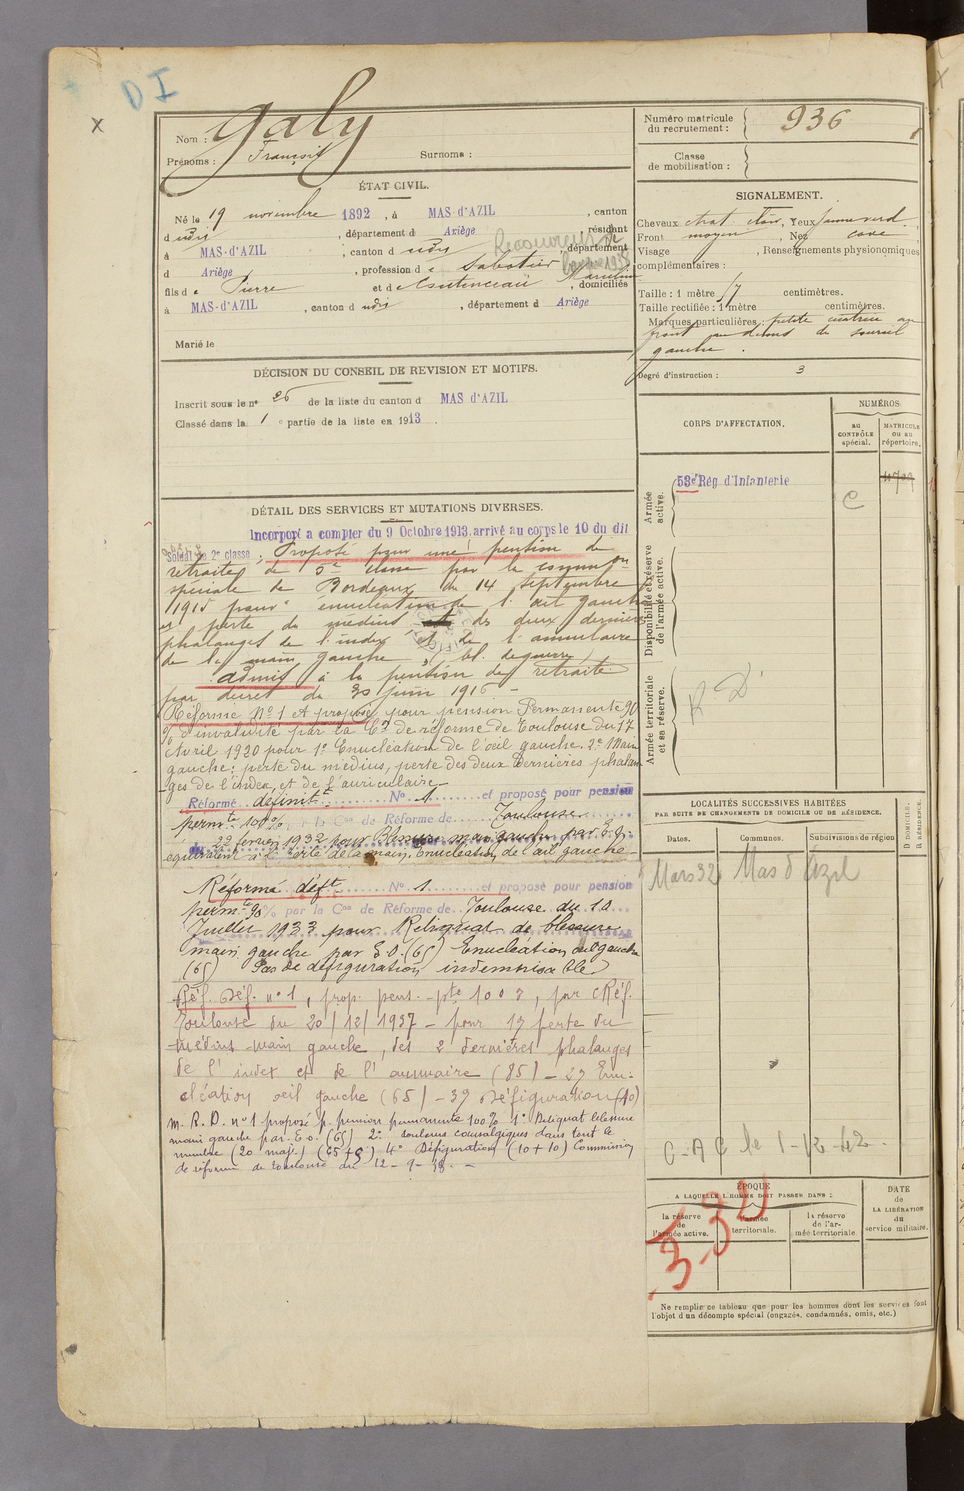 D I
X
Nom : Galy
Prénoms : François Surnoms :
Numéro matricule du recrutement : 936
Classe de mobilisation :
ÉTAT CIVIL.
Né le 19 novembre 1892, à MAS-d'AZIL, canton
d udis, département d Ariège, résidant
à MAS-d'AZIL, canton d udis, département
d Ariège, profession d e Sabotier
fils d e Pierre et d e , domiciliés
à MAS-d'AZIL, canton d udis, département d Ariège
Marié le
DÉCISION DU CONSEIL DE REVISION ET MOTIFS.
Inscrit sous le n° 26 de la liste du canton d MAS d'AZIL
Classé dans la 1 e partie de la liste en 1913.
DÉTAIL DES SERVICES ET MUTATIONS DIVERSES.
Incorporé a compter du 9 Octobre 1913, arrivé au corps le 10 du dit
Soldat de 2e classe; Proposé pour une pension de
retraite de 5e classe par la common
spéciale de Bordeaux du 14 septembre
1915 pour énucléation de l'œil gauche
et perte du médius des deux dernières
phalanges de l'index et de l'annulaire
de la main gauche, bl. de guerre)
admis à la pension de retraite
par décret du 30 juin 1916 -
Réforme No 1 et proposé pour pension Permanente 90
% d'invalidité par la Con de réforme de Toulouse du 17
Avril 1920 pour 1° Enucléation de l'œil gauche. 2° Main
gauche: perte du médius, perte des deux dernières phalan
ges de l'index, et de l'auriculaire
Réformé définitt No 1 et proposé pour pension
permte 100% par la Con de Réforme de Toulouse
du 22 février 1932 pour Blessure main gauche par E.O.
équivalent à la Perte de la main. Enucléation de l'œil gauche
Réformé déft No 1 et proposé pour pension
permte 90% par la Con de Réforme de Toulouse du 10
Juillet 1933 pour Reliquat de blessure
main gauche par E.O. (65) Enucléation œil gauche
(65) Pas de défiguration indemnisable
Réf. Déf. n° 1, prop. pens. pte 100 %, par CRéf.
Toulouse du 20/12/1937 - pour 1°/ perte du
médius main gauche, des 2 dernières phalanges
de l'index et de l'annulaire (85) - 2°/ Enu-
cléation œil gauche (65) - 3°/ Défiguration (10)
M.R.D. n° 1 proposé p. pension permanente 100% 1° Reliquat blessure
main gauche par E.O. (65) 2° douleurs causalgiques dans tout le
membre (20 maj.) (65+5) 4° Défiguration (10+10) Commission
de réforme de Toulouse du 12-9-38. -
SIGNALEMENT.
Cheveux chat. clair, Yeux jaune verd.
Front moyen, Nez cave,
Visage , Renseignements physionomiques
complémentaires :
Taille : 1 mètre 57 centimètres.
Taille rectifiée : 1 mètre centimètres.
Marques particulières : petite cicatrice au
front au dessus du sourcil
gauche.
Degré d'instruction : 3
CORPS D'AFFECTATION.
NUMÉROS
AU CONTRÔLE spécial.
MATRICULE OU AU répertoire.
Armée active.
53e Rég d'Infanterie
C
4709
Disponibilité et réserve de l'armée active.
Armée territoriale et sa réserve.
R D
LOCALITÉS SUCCESSIVES HABITÉES
PAR SUITE DE CHANGEMENTS DE DOMICILE OU DE RÉSIDENCE.
Dates. Communes. Subdivisions de région
D DOMICILE. R RÉSIDENCE.
Mars 32 Mas d'Azil
C-A C le 1-12-42.
ÉPOQUE
A LAQUELLE L'HOMME DOIT PASSER DANS :
la réserve de l'armée active.
l'armée territoriale.
la réserve de l'armée territoriale
DATE de LA LIBÉRATION du service militaire.
Ne remplir ce tableau que pour les hommes dont les services font
l'objet d'un décompte spécial (engagés, condamnés, omis, etc.)